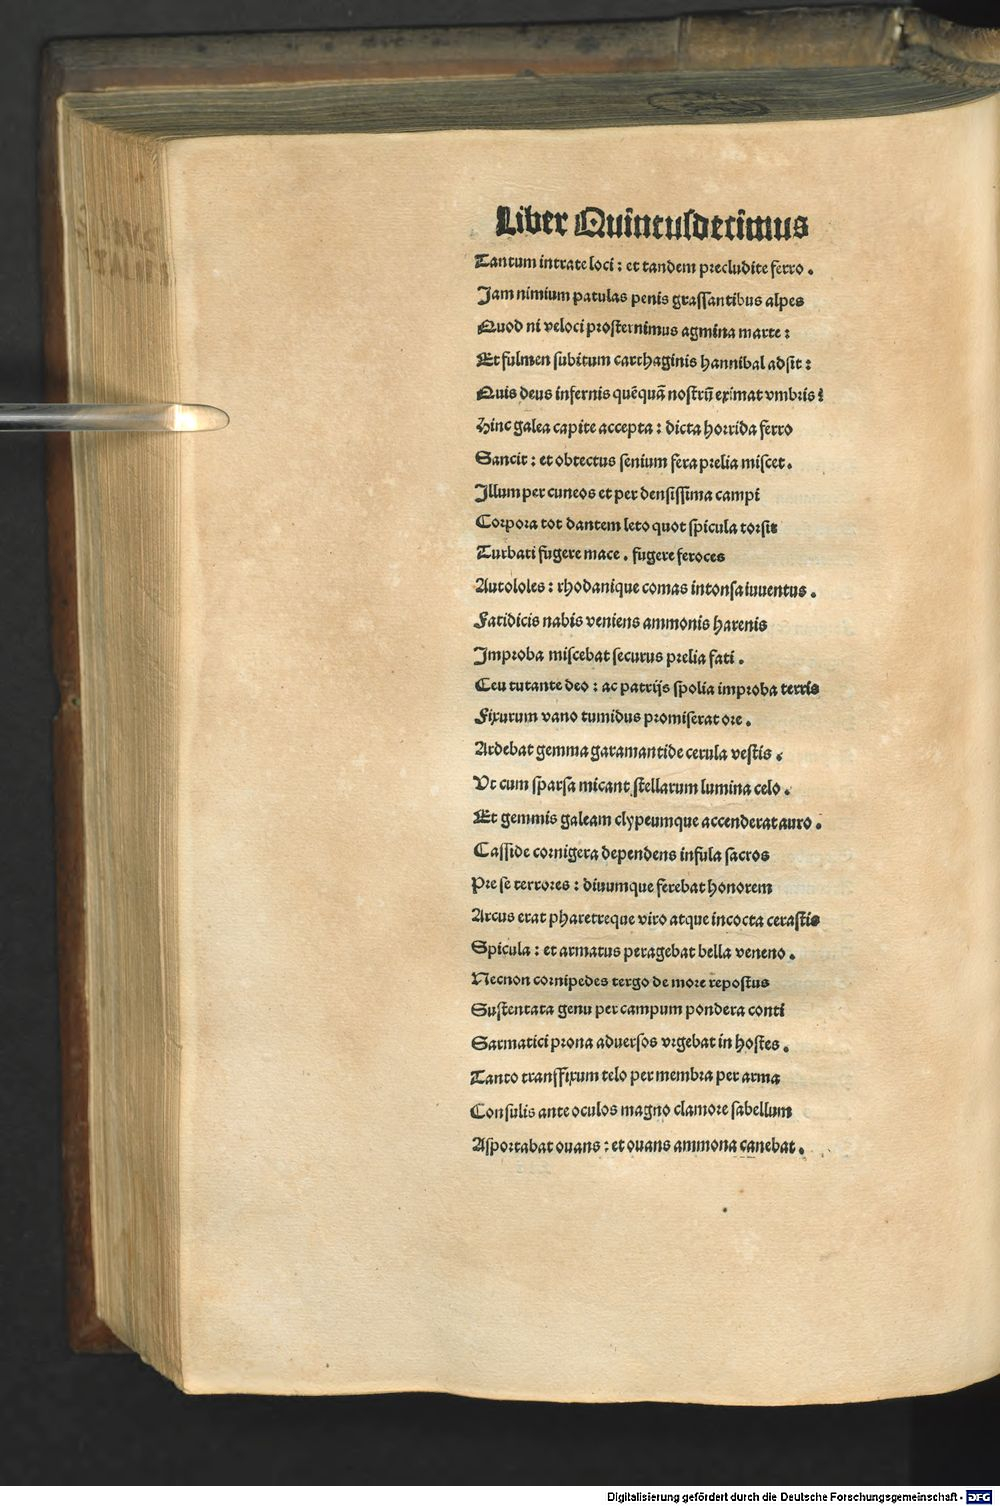 Liber Quīntusdecīmus
Tantum intrate loci : et tandem precludite ferro .
Jam nimium patulas penis grassantibus alpes
Quod ni veloci prosternimus agmina marte :
Et fulmen subitum carthaginis hannibal adsit :
Quis deus infernis quēquā nostrū eximat vmbris :
Hinc galea capite accepta : dicta horrida ferro
Sancit : et obtectus senium fera prelia miscet .
Illum per cuneos et per densissima campi
Corpora tot dantem leto quot spicula torsit
Turbati fugere mace . fugere feroces
Autololes : rhodanique comas intonsa iuuentus .
Fatidicis nabis veniens ammonis harenis
Improba miscebat securus prelia fati .
Ceu tutante deo : ac patrijs spolia improba terris
Fixurum vano tumidus promiserat ore .
Ardebat gemma garamantide cerula vestis .
Vt cum sparsa micant stellarum lumina celo .
Et gemmis galeam clypeumque accenderat auro .
Casside cornigera dependens infula sacros
Pre se terrores : diuumque ferebat honorem
Arcus erat pharetreque viro atque incocta cerastis
Spicula : et armatus peragebat bella veneno .
Necnon cornipedes tergo de more repostus
Sustentata genu per campum pondera conti
Sarmatici prona aduersos vrgebat in hostes .
Tanto transfixum telo per membra per arma
Consulis ante oculos magno clamore sabellum
Asportabat ouans : et ouans ammona canebat .
Digitalisierung gefördert durch die Deutsche Forschungsgemeinschaft - DFG